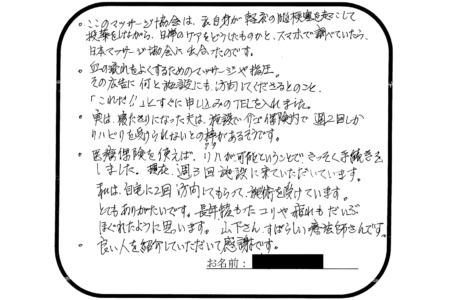 ・このマッサージ協会は、私自身が軽度の脳梗塞を起こして
投薬をしながら、日常のケアをどうしたものかと、スマホで調べていたら、
日本マッサージ協会に出会ったのです。
・血の流れをよくするためのマッサージや指圧。
その広告に何と施設にも訪問してくださるとのこと、
「これだ!!」とすぐに申し込みのTELを入れました。
・実は、寝たきりになった夫は、施設で介護保険内で週2回しか
リハビリを受けられないとの枠があるそうです。
・医療保険を使えば、リハが可能ということでさっそく手続きを
しました。現在、週3回施設に来ていただいています。
私は、自宅に2回訪問してもらって、施術を受けています。
とてもありがたいです。長年積もったコリや疲れもだいぶ
ほぐれたように思います。山下さん、すばらしい療法師さんです。
・良い人を紹介していただいて感謝です。
お名前: